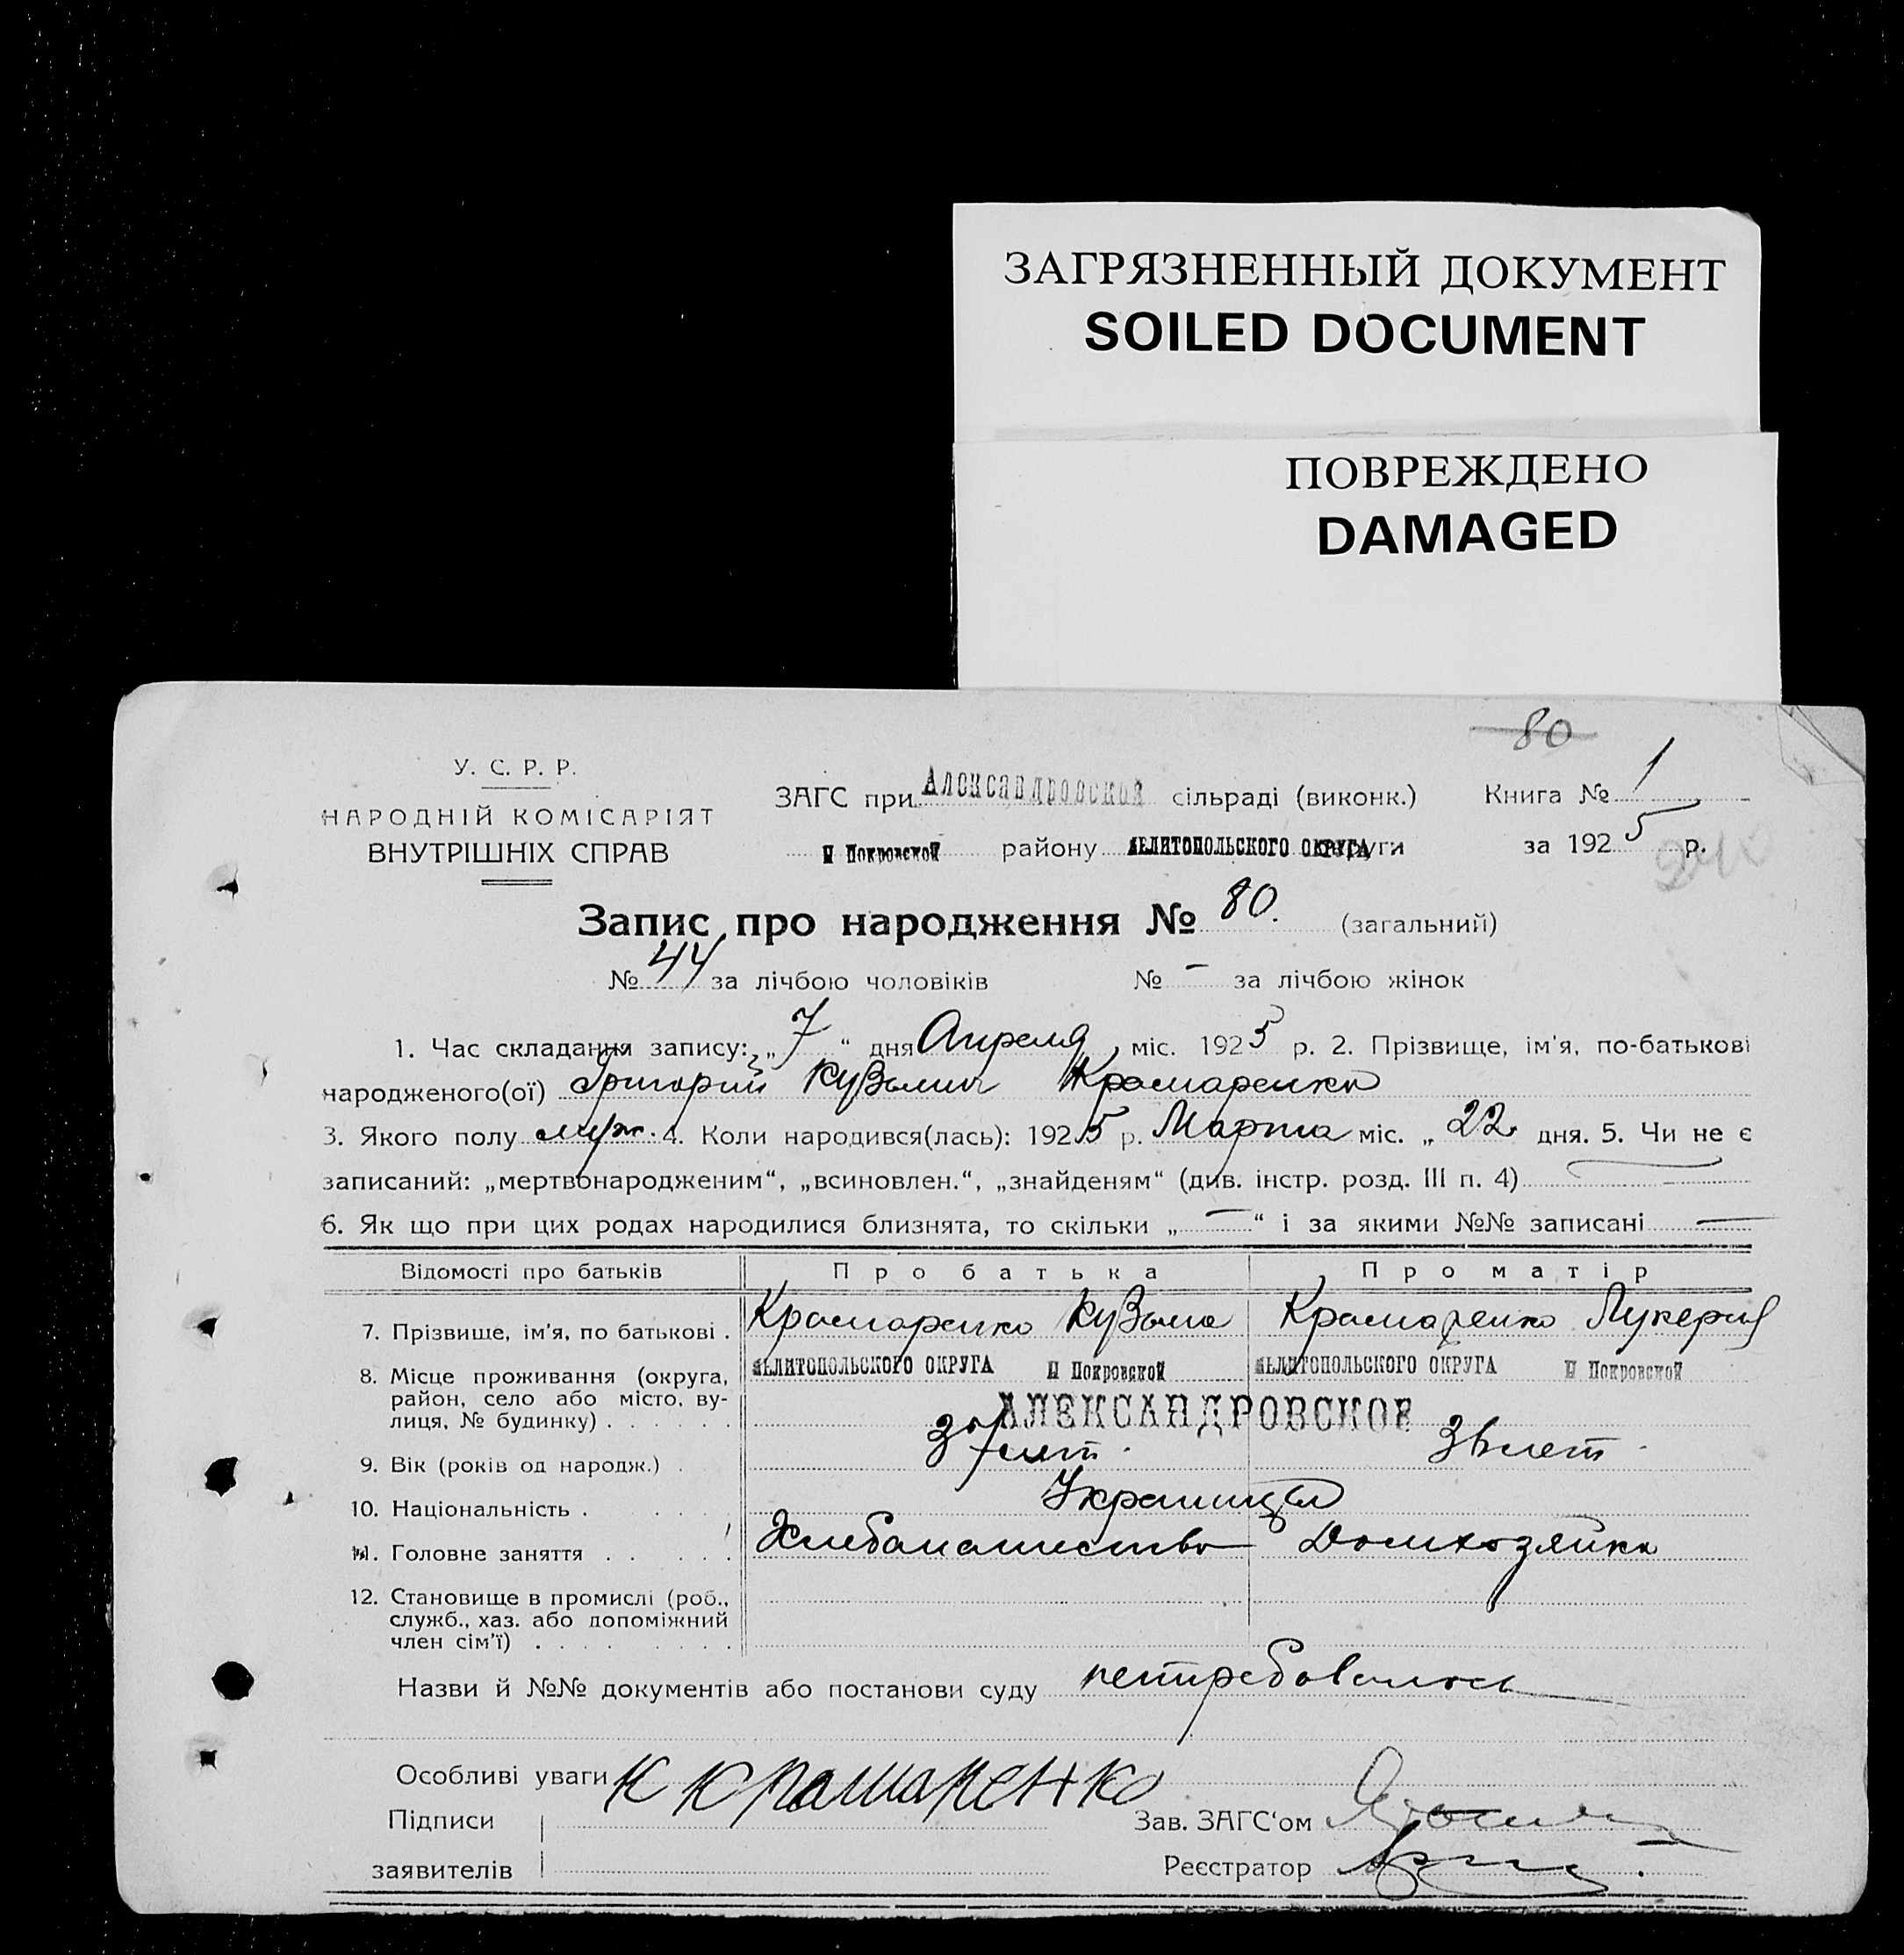 ЗАГРЯЗНЕННЫЙ ДОКУМЕНТ
SOILED DOCUMENT
ПОВРЕЖДЕНО
DAMAGED
80
У. С. Р. Р.
НАРОДНІЙ КОМІСАРІЯТ
ВНУТРІШНІХ СПРАВ
ЗАГС при Александровской сільраді (виконк.) Книга № 1
Н Покровской району МЕЛИТОПОЛЬСКОГО ОКРУГА округи за 1925 р.
Запис про народження № 80. (загальний)
№ 44 за лічбою чоловіків № – за лічбою жінок
1. Час складання запису: „7“ дня Апреля міс. 1925 р. 2. Прізвище, ім'я, по-батькові
народженого(ої) Григорий Кузьмич Крамаренко
3. Якого полу муж. 4. Коли народився(лась): 1925 р. Марта міс. „22 дня. 5. Чи не є
записаний: „мертвонародженим“, „всиновлен.“, „знайденям“ (див. інстр. розд. III п. 4) —
6. Як що при цих родах народилися близнята, то скільки „—“ і за якими №№ записані —
Відомості про батьків Про батька Про матір
7. Прізвище, ім'я, по батькові . Крамаренко Кузьма Крамаренко Лукерия
8. Місце проживання (округа, МЕЛИТОПОЛЬСКОГО ОКРУГА Н Покровской МЕЛИТОПОЛЬСКОГО ОКРУГА Н Покровской
район, село або місто, ву-
лиця, № будинку) . . . . . . АЛЕКСАНДРОВСКОЕ
9. Вік (років од народж.) . лет лет
10. Національність . . . . . Украинцы
11. Головне заняття . . . . . Хлебопашество Домхозяйка
12. Становище в промислі (роб.,
служб., хаз. або допоміжний
член сім'ї) . . . . . . . .
Назви й №№ документів або постанови суду нетребовалось
Особливі уваги К Крамаренко
Підписи Зав. ЗАГС'ом
заявителів Реєстратор